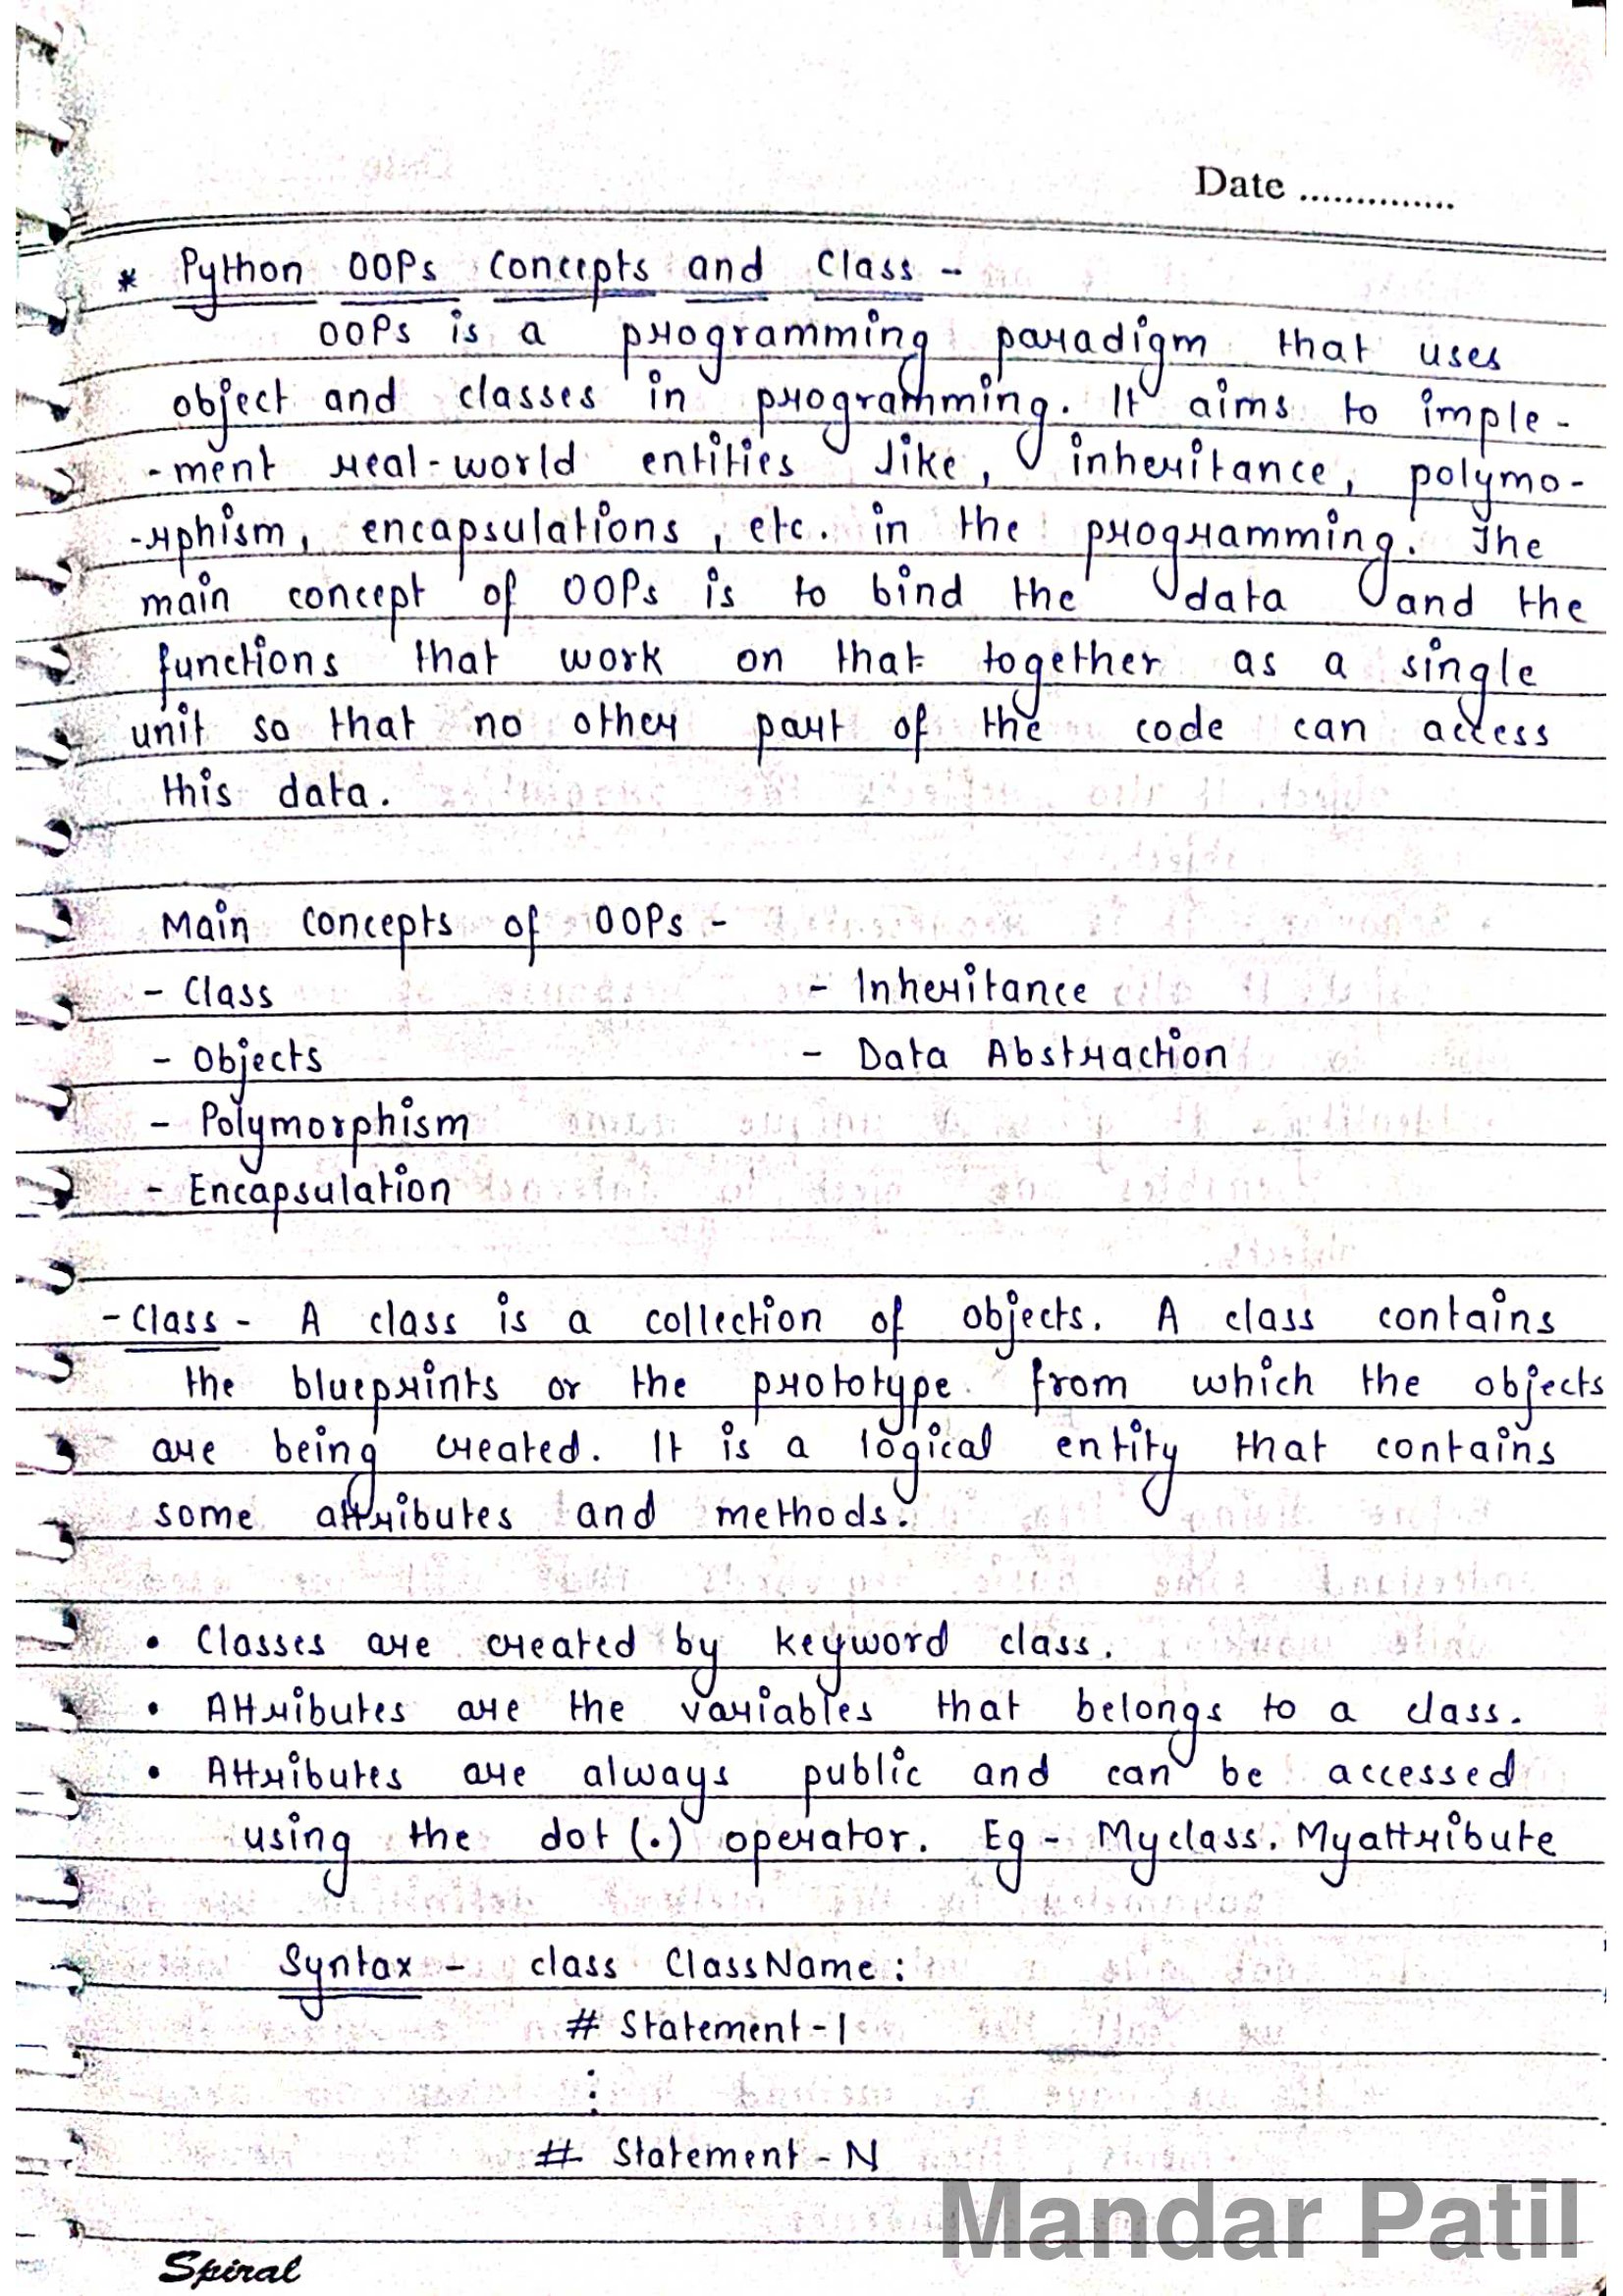 Date ..............
* Python OOPs Concepts and Class -
OOPs is a programming paradigm that uses
object and classes in programming. It aims to imple-
-ment real-world entities like, inheritance, polymo-
-rphism, encapsulations, etc. in the programming. The
main concept of OOPs is to bind the data and the
functions that work on that together as a single
unit so that no other part of the code can access
this data.
Main Concepts of OOPs -
- Class - Inheritance
- Objects - Data Abstraction
- Polymorphism
- Encapsulation
- Class - A class is a collection of objects. A class contains
the blueprints or the prototype from which the objects
are being created. It is a logical entity that contains
some attributes and methods.
• Classes are created by keyword class.
• Attributes are the variables that belongs to a class.
• Attributes are always public and can be accessed
using the dot (.) operator. Eg - Myclass. Myattribute
Syntax - class ClassName:
# Statement - 1
:
# Statement - N
Mandar Patil
Spiral